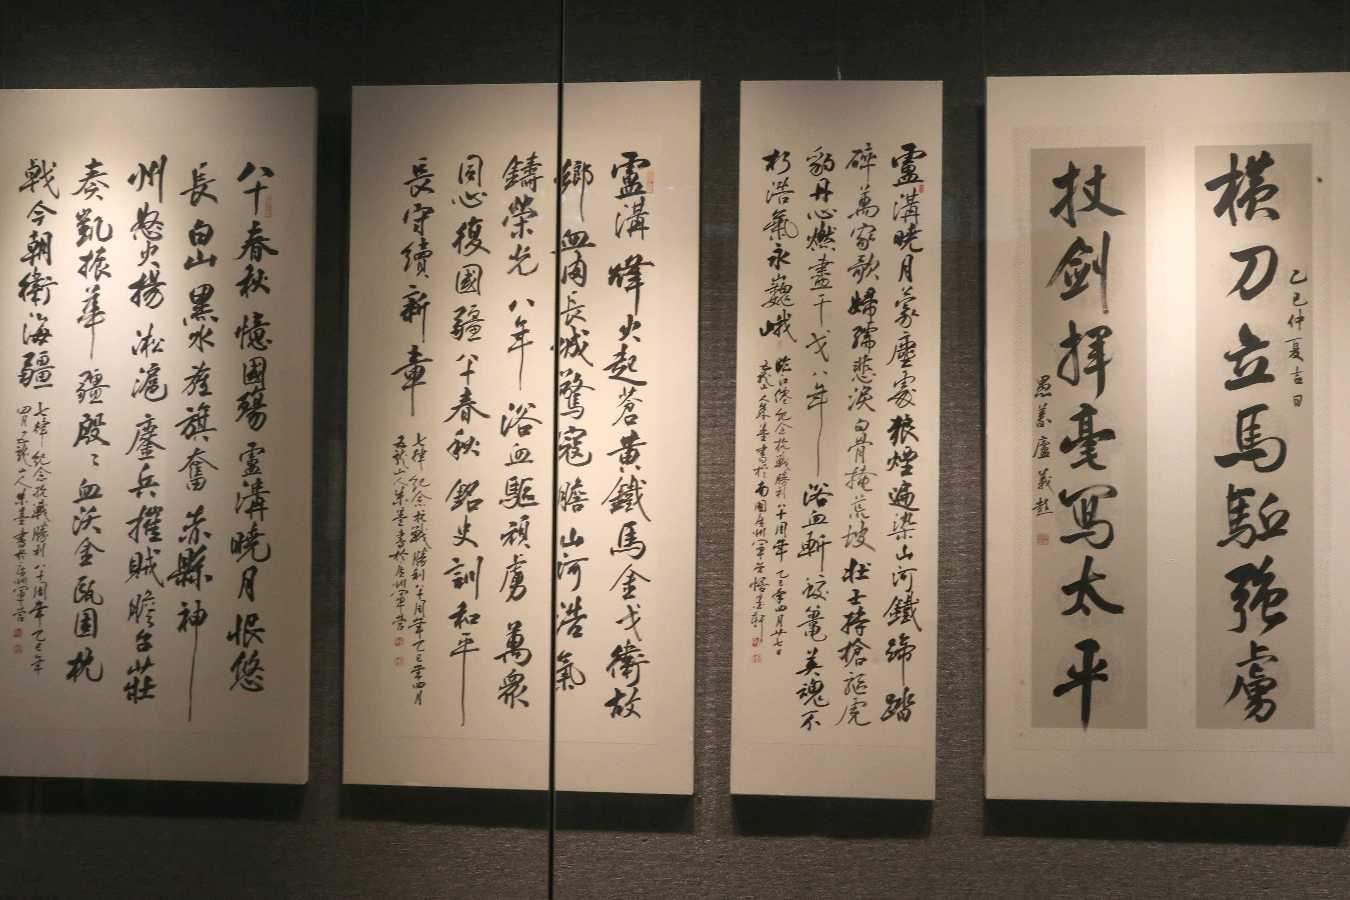 橫刀立馬驅強虜
乙巳仲夏吉日
杖劍揮毫寫太平
愚善廬 義彭
盧溝曉月蒙塵處狼煙遍染山河鐵蹄踏
碎萬家歌婦孺悲淚白骨掩荒坡壯士持槍驅虎
豹丹心燃盡干戈八年浴血斬蛟鼉英魂不
朽浩氣永巍峨 臨江僊紀念抗戰勝利八十周年乙巳年四月廿七日
山人朱墨書於南國廣州軍營
盧溝烽火起蒼黃鐵馬金戈衛故
鄉血肉長城驚寇膽山河浩氣
鑄榮光八年浴血驅頑虜萬眾
同心復國疆八十春秋銘史訓和平
長守續新章
七律紀念抗戰勝利八十周年乙巳年四月
山人朱墨書於廣州軍營
八十春秋憶國殤盧溝曉月恨悠
長白山黑水旌旗奮赤縣神
州怒火揚淞滬鏖兵摧賊膽台莊
奏凱振華疆殷殷血沃金甌固枕
戟今朝衛海疆
七律紀念抗戰勝利八十周年乙巳年
四月 山人朱墨書於廣州軍營